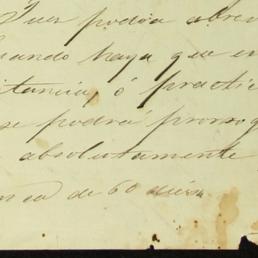 Juez podrá abrev
cuando haya que en
itancia, ó practic
se podrá prorrog
absolutamente
de 60 dias.